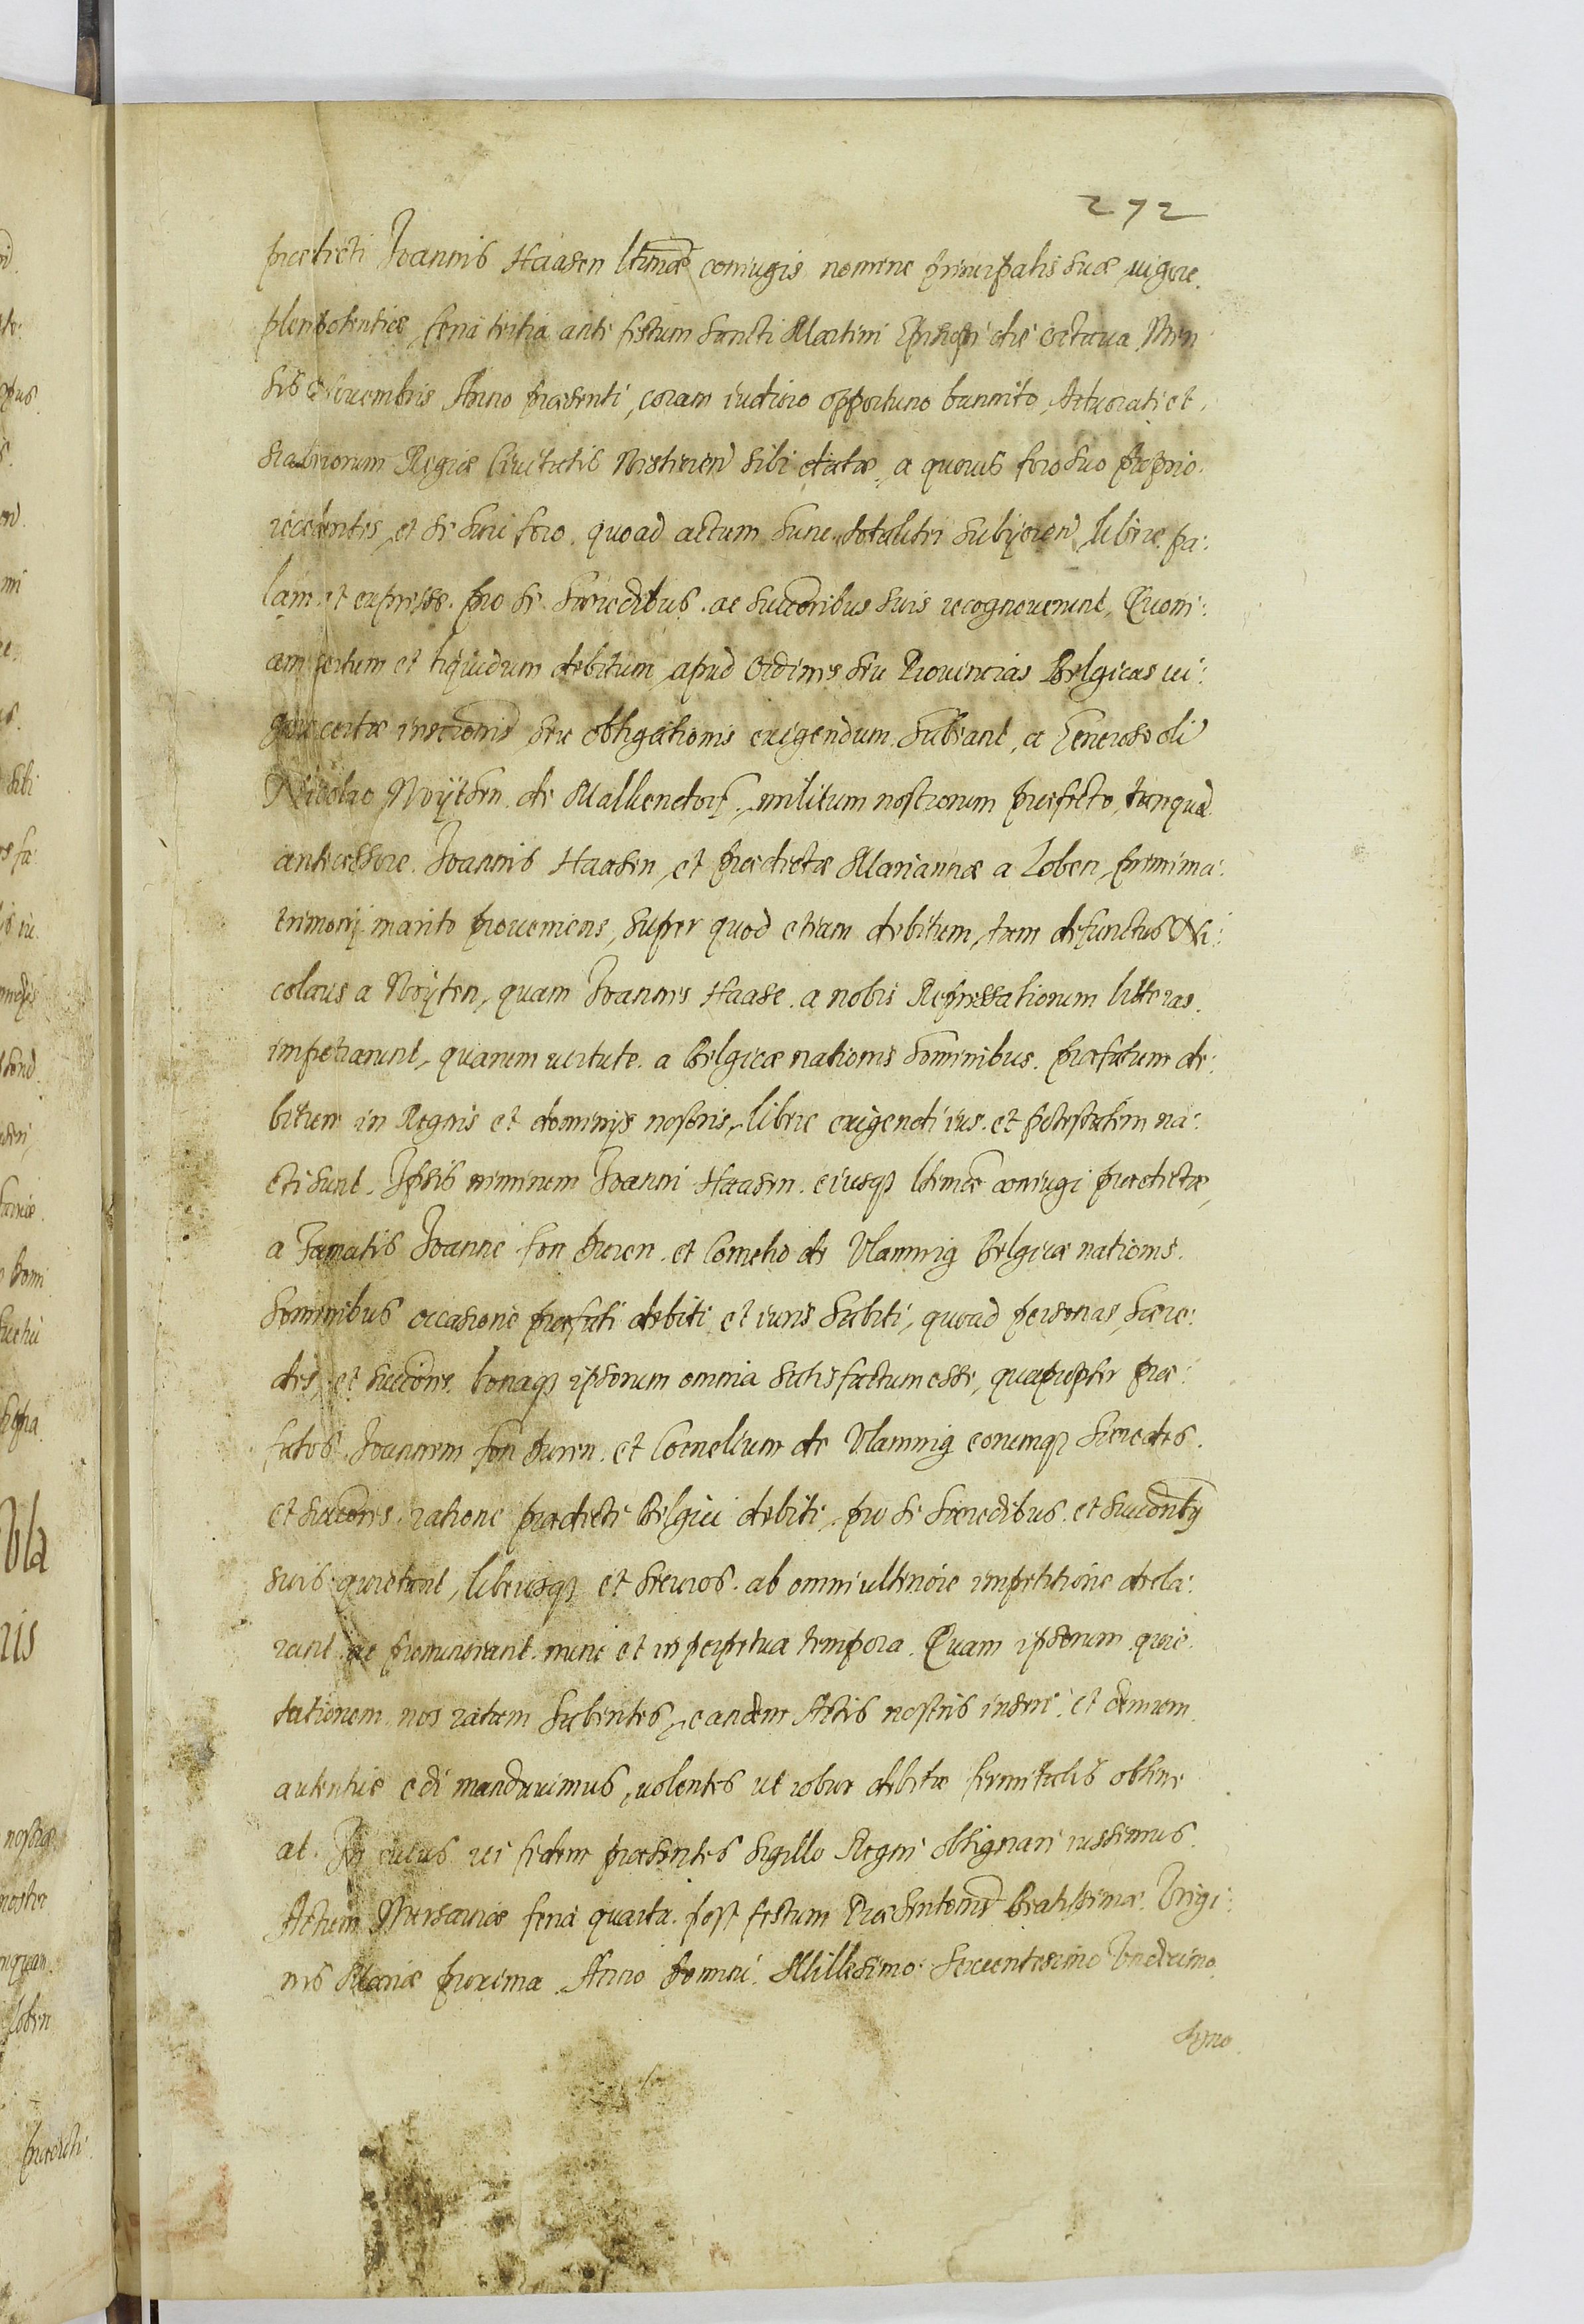 272
praedicti Joannis Haasen ltimae coniugis nomine principalis suae uigore
plenipotentiae feria tertia ante festum Sancti Martini Episcopi die octaua Men
sis Nouembris Anno praesenti, coram iudicio opportuno bannito Aduocati et
Scabinorum Regiae Ciuitatis sibi dictae, a quouis foro suo proprio
recedentes, et se huic foro, quoad actum hunc totaliter subijcien libere, pa:
lam et expresse, pro se haeredibus ac succoribus suis recognouerunt, Quoni:
am certum et liquidum debitum, apud Ordines seu Prouincias Belgicas ui:
gore certae seu obligationis exigendum habeant, a Generoso oli
Nicolao Noÿtsen de Malkendorf, militum nostrorum praefecto, tanqua
antecessore Joannis Haasen, et praedictae Mariannae a Loben, primi ma:
trimonij marito proueniens, super quod etiam debitum, tam defunctus Ni:
colaus a Noÿten, quam Joannes Haase a nobis Repressaliorum litteras
impetrarunt, quarum uirtute a Belgicae nationis hominibus praefatum de:
bitum in Regnis et dominijs nostris, libere exigendi ius et potestatem na:
cti sunt. Ipsis nimirum Joanni Haasen eiusq3 ltimae coniugi praedictae,
a Famatis Joanne fon Buren et Cornelio de Vlamnig Belgicae nationis
hominibus occasione praefati debiti et iuris habiti, quoad personas, haere:
des, et succores bonaq3 ipsorum omnia satisfactum esse, quapropter prae:
fatos Joannem fon Buren et Cornelium de Vlamnig eorumq3 haeredes
et succores ratione praedicti Belgici debiti, pro se haeredibus et succoribus
suis quietant, liberosq3 et securos ab omni ulteriore impetitione decla:
rant ac pronunciant nunc et in perpetua tempora. Quam ipsorum quie:
tationem nos ratam habentes, eandem Actis nostris inseri et demum
autentice edi mandauimus, uolentes ut robur debitae firmitatis obtine
at. In cuius rei fidem praesentes sigillo Regni obsignari iussimus.
Actum Warsauiae feria quarta post festum Praesentonis Beatissimae Virgi:
nis Mariae proxima Anno Domini Millesimo Sexcentesimo Vndecimo